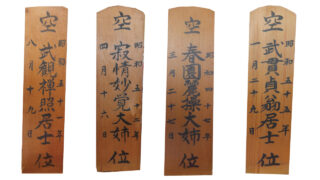 空
昭和五十一年
武観禅照居士
八月十九日
位
空
昭和五十三年
寂情妙覚大姉
四月十六日
位
空
昭和五十二年
春園麗操大姉
三月二十七日
位
空
昭和五十五年
武貫貞翁居士
一月二十九日
位